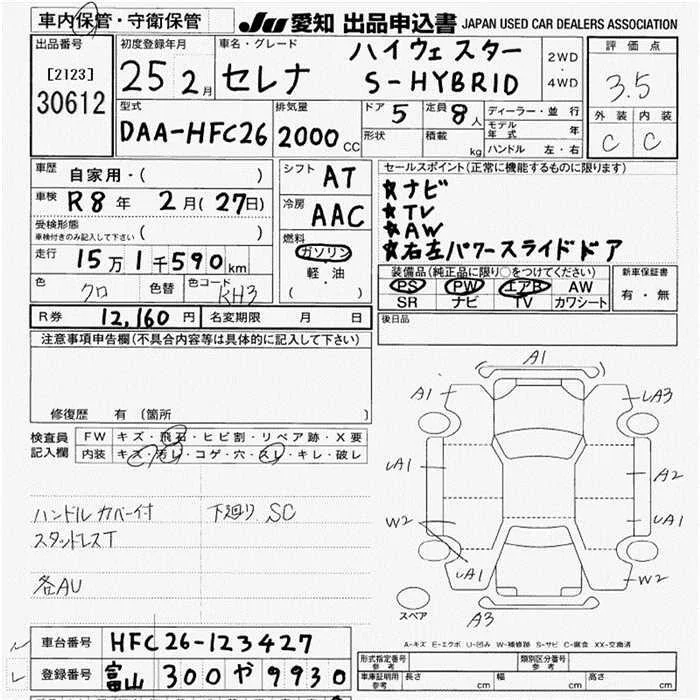 車内保管・守衛保管
JU 愛知 出品申込書 JAPAN USED CAR DEALERS ASSOCIATION
出品番号 初度登録年月 車名・グレード 評価点
[2123] 25 2月 セレナ ハイウェスター 2WD・4WD 3.5
30612 S-HYBRID
型式 排気量 ドア 5 定員 8人 ディーラー・並行 外装 内装
DAA-HFC26 2000cc 形状 積載 kg モデル年式 年 C C
ハンドル 左・右
車歴 自家用・( ) シフト AT セールスポイント(正常に機能するものに限ります)
車検 R8年 2月(27日) 冷房 AAC ★ナビ
★TV
受検形態 ( ) ★AW
車検付きのみ記入して下さい 燃料 ★右左パワースライドドア
走行 15万1千590km ガソリン
軽・油
( )
色 クロ 色替 色コード KH3
装備品(純正品に限り○をつけてください) 新車保証書
PS PW エアB AW 有・無
SR ナビ TV カワシート
R券 12,160円 名変期限 月 日 後日品
注意事項申告欄(不具合内容等は具体的に記入して下さい)
修復歴 有 (箇所 )
検査員 FW キズ・飛石・ヒビ割・リペア跡・X要
記入欄 内装 キズ・汚レ・コゲ・穴・スレ・キレ・破レ
ハンドルカバー付 下廻り SC
スタッドレスT
各AU
A1
A1 LA3
LA1 A2
W2 LA1
LA1 W2
A3
スペア
A-キズ E-エクボ U-凹み W-補修跡 S-サビ C-腐食 XX-交換済
車台番号 HFC26-123427
登録番号 富山 300 や 9930
形式指定番号 参考 類別区分番号 参考
車庫証明用 参考 長さ cm 幅 cm 高さ cm